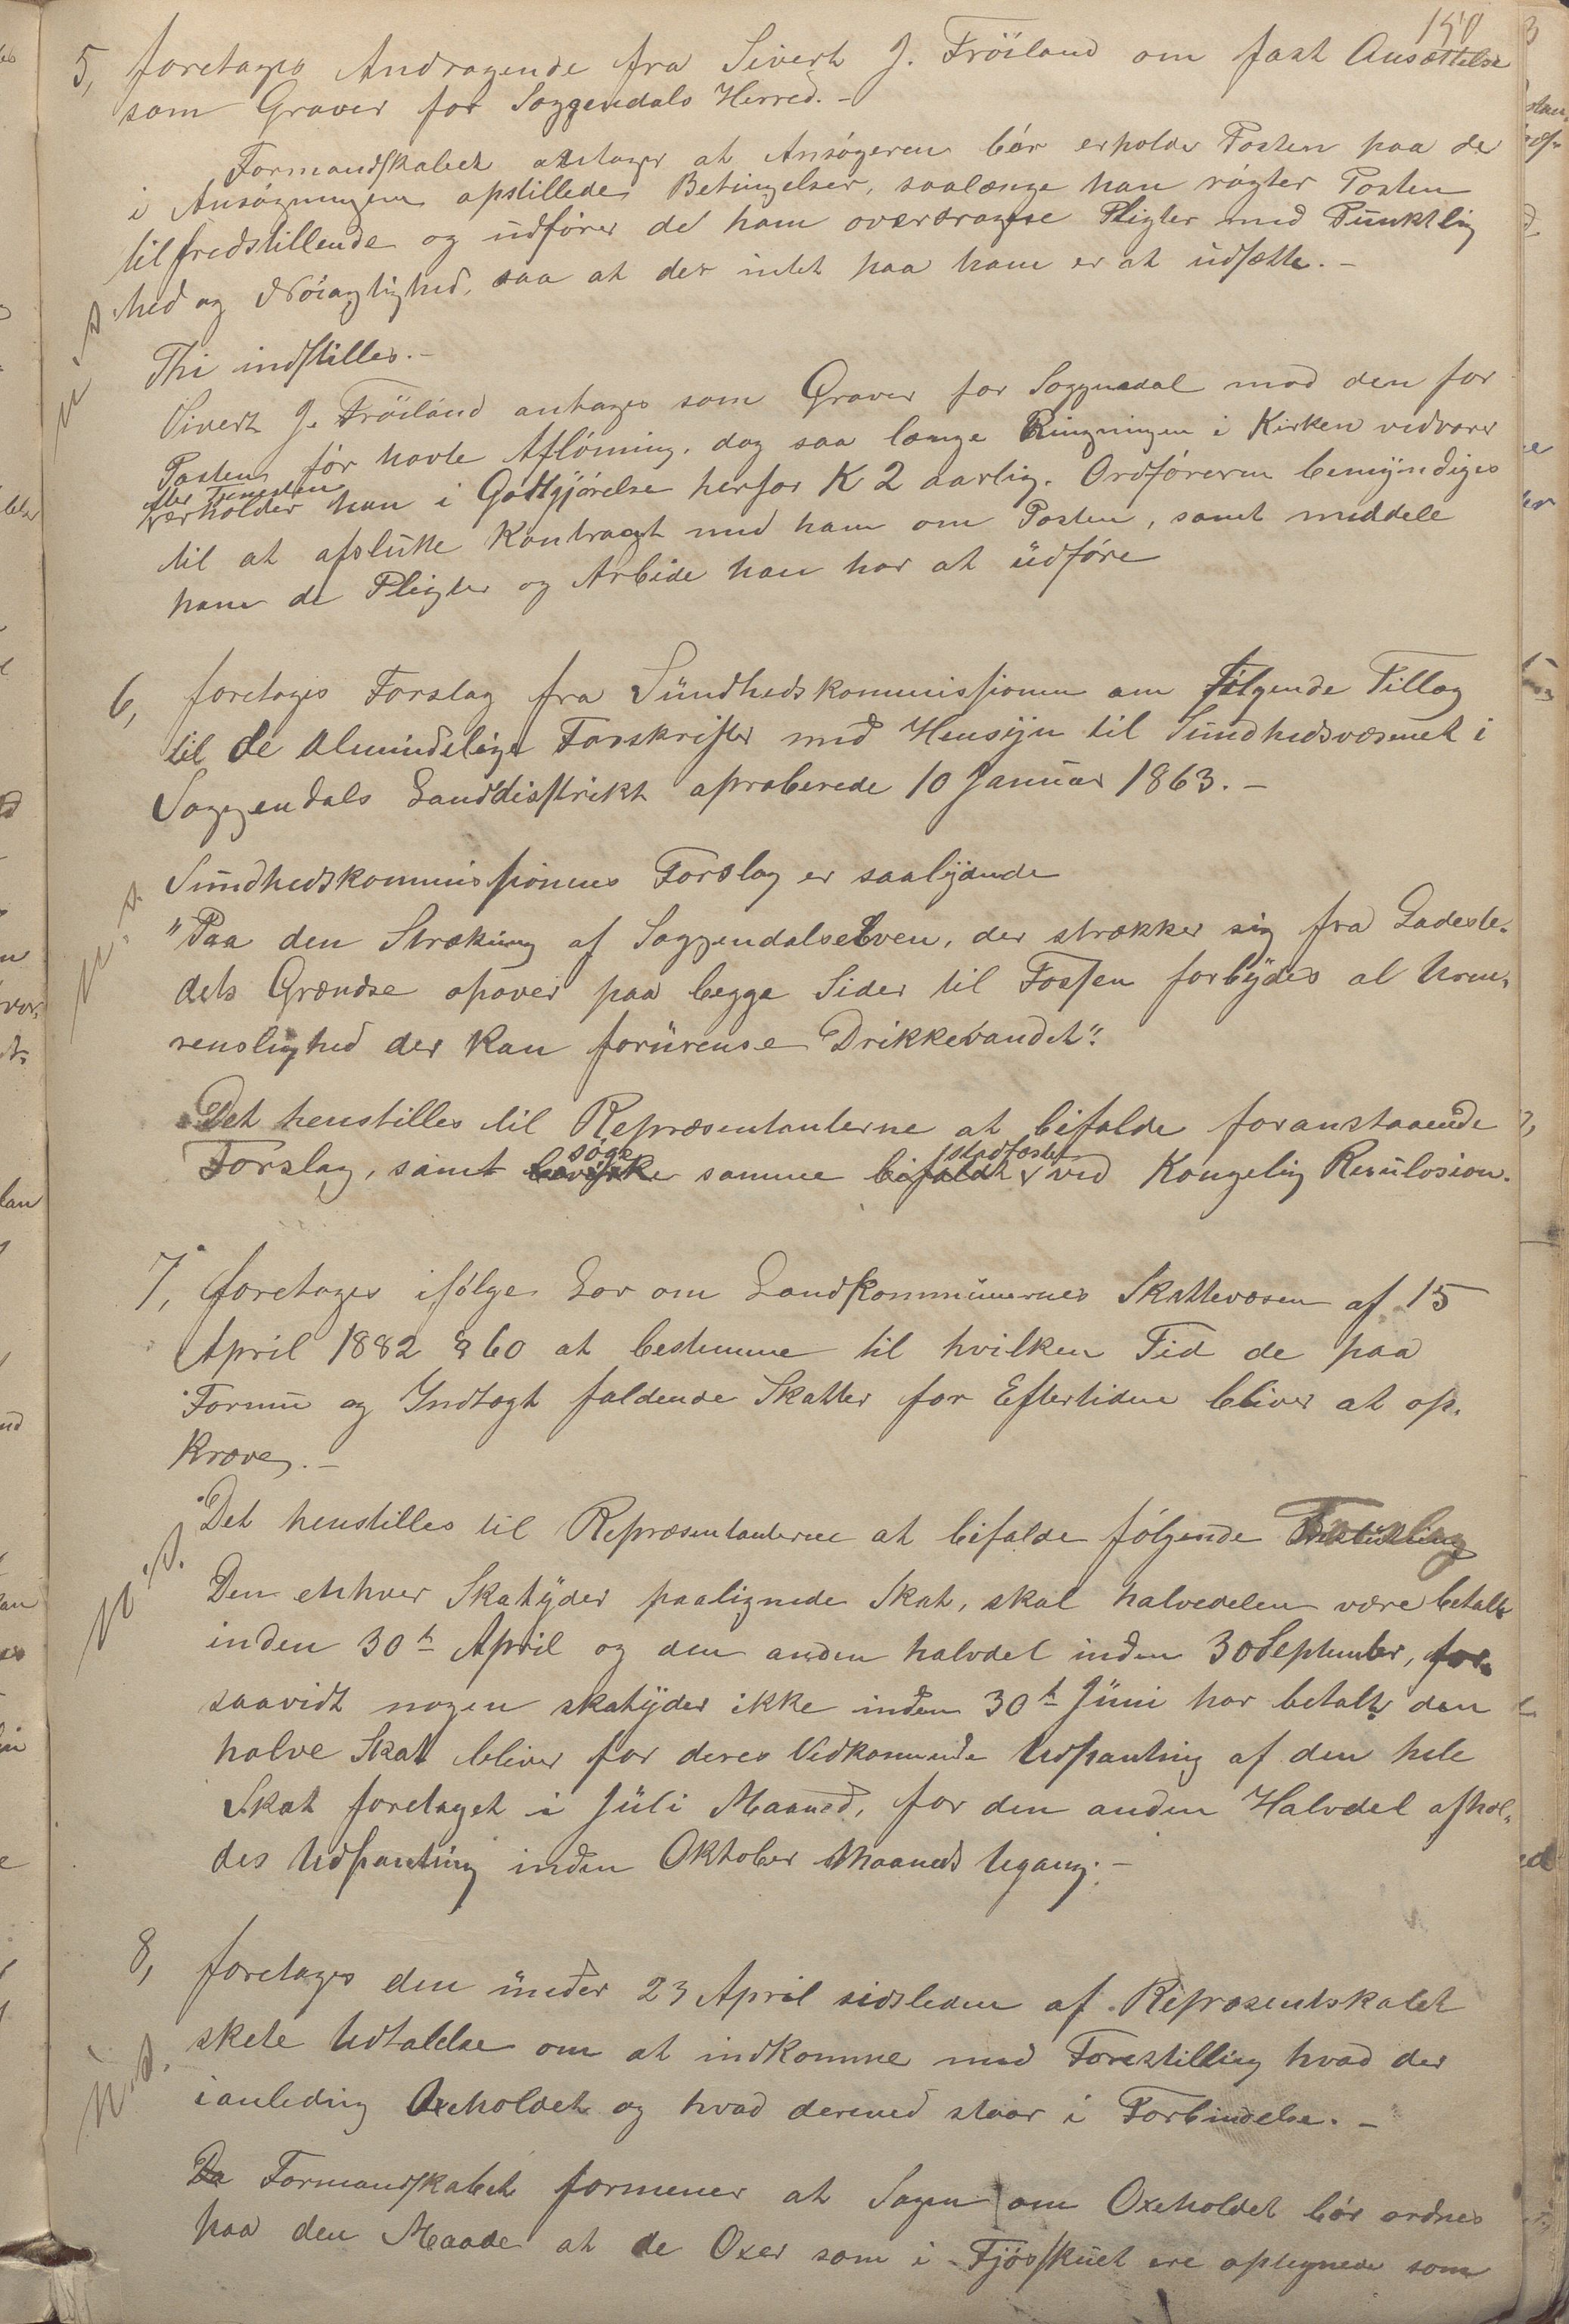 150
5, foretages Andragende fra Sivert J. Fröiland om fast Ansættelse
som Graver for Soggendals Herred. –
Formandskabet antager at Ansøgeren bør erholde Posten paa de
i Ansøgningen opstillede Betingelser, saalænge han røgter Posten
tilfredstillende og udfører de ham overdragne Pligter med Punktlig
hed og Nöiagtighed, saa at der intet paa ham er at udsætte. –
Thi indstilles. –
Sivert J. Fröiland antages som Graver for Soggendal mod den for
Posten før havte Aflønning, dog saa længe Ringningen i Kirken vedvarer
efter Tjenesten
erholder han i Godtgjørelse herfor K 2 aarlig. Ordføreren bemyndiges
til at afslutte Kontract med ham om Posten, samt meddele
ham de Pligter og Arbeide han har at udføre
6, foretages Forslag fra Sundhedskommissionen om følgende Tillæg
til de almindelige Forskrifter med Hensyn til Sundhedsvæsenet i
Soggendals Landdistrikt aproberede 10 Januar 1863. –
Sundhedskommissionens Forslag er saalydende
"Paa den Strækning af Soggendalselven, der strækker sig fra Ladeste-
dets Grændse opover paa begge Sider til Fossen forbydes al Uren-
renslighed der kan forurense Drikkevandet".
Det henstilles til Repræsentanterne at bifalde foranstaaende
søge stadfæstet
Forslag, samt bevirke samme bifaldt ved Kongelig Resulosion.
7, foretages ifølge Lov om Landkommunernes Skattevæsen af 15
April 1882 § 60 at bestemme til hvilken Tid de paa
Formue og Indtægt faldende Skatter for Eftertiden bliver at op-
kræve. –
Det henstilles til Repræsentanterne at bifalde følgende Forslag
Den enhver Skatyder paalignede Skat, skal halvedelen være betalt
inden 30t April og den anden halvdel inden 30 September, for-
saavidt nogen skatyder ikke inden 30t Juni har betalt den
halve Skat bliver for deres Vedkomende Udpanting af den hele
Skat foretaget i Juli Maaned, for den anden Halvdel afhol-
des Udpanting inden Oktober Maaneds Ugang. –
8, foretages den under 23 April sidsleden af Repræsentskabet
skete Udtalelse om at indkomme med Forestilling hvad der
ianleding Oxeholdet og hvad dermed staar i Forbindelse. –
Da Formandskabet formener at Sagen om Oxeholdet bør ordnes
paa den Maade at de Oxer som i Fjøsskuet ere optegnede som